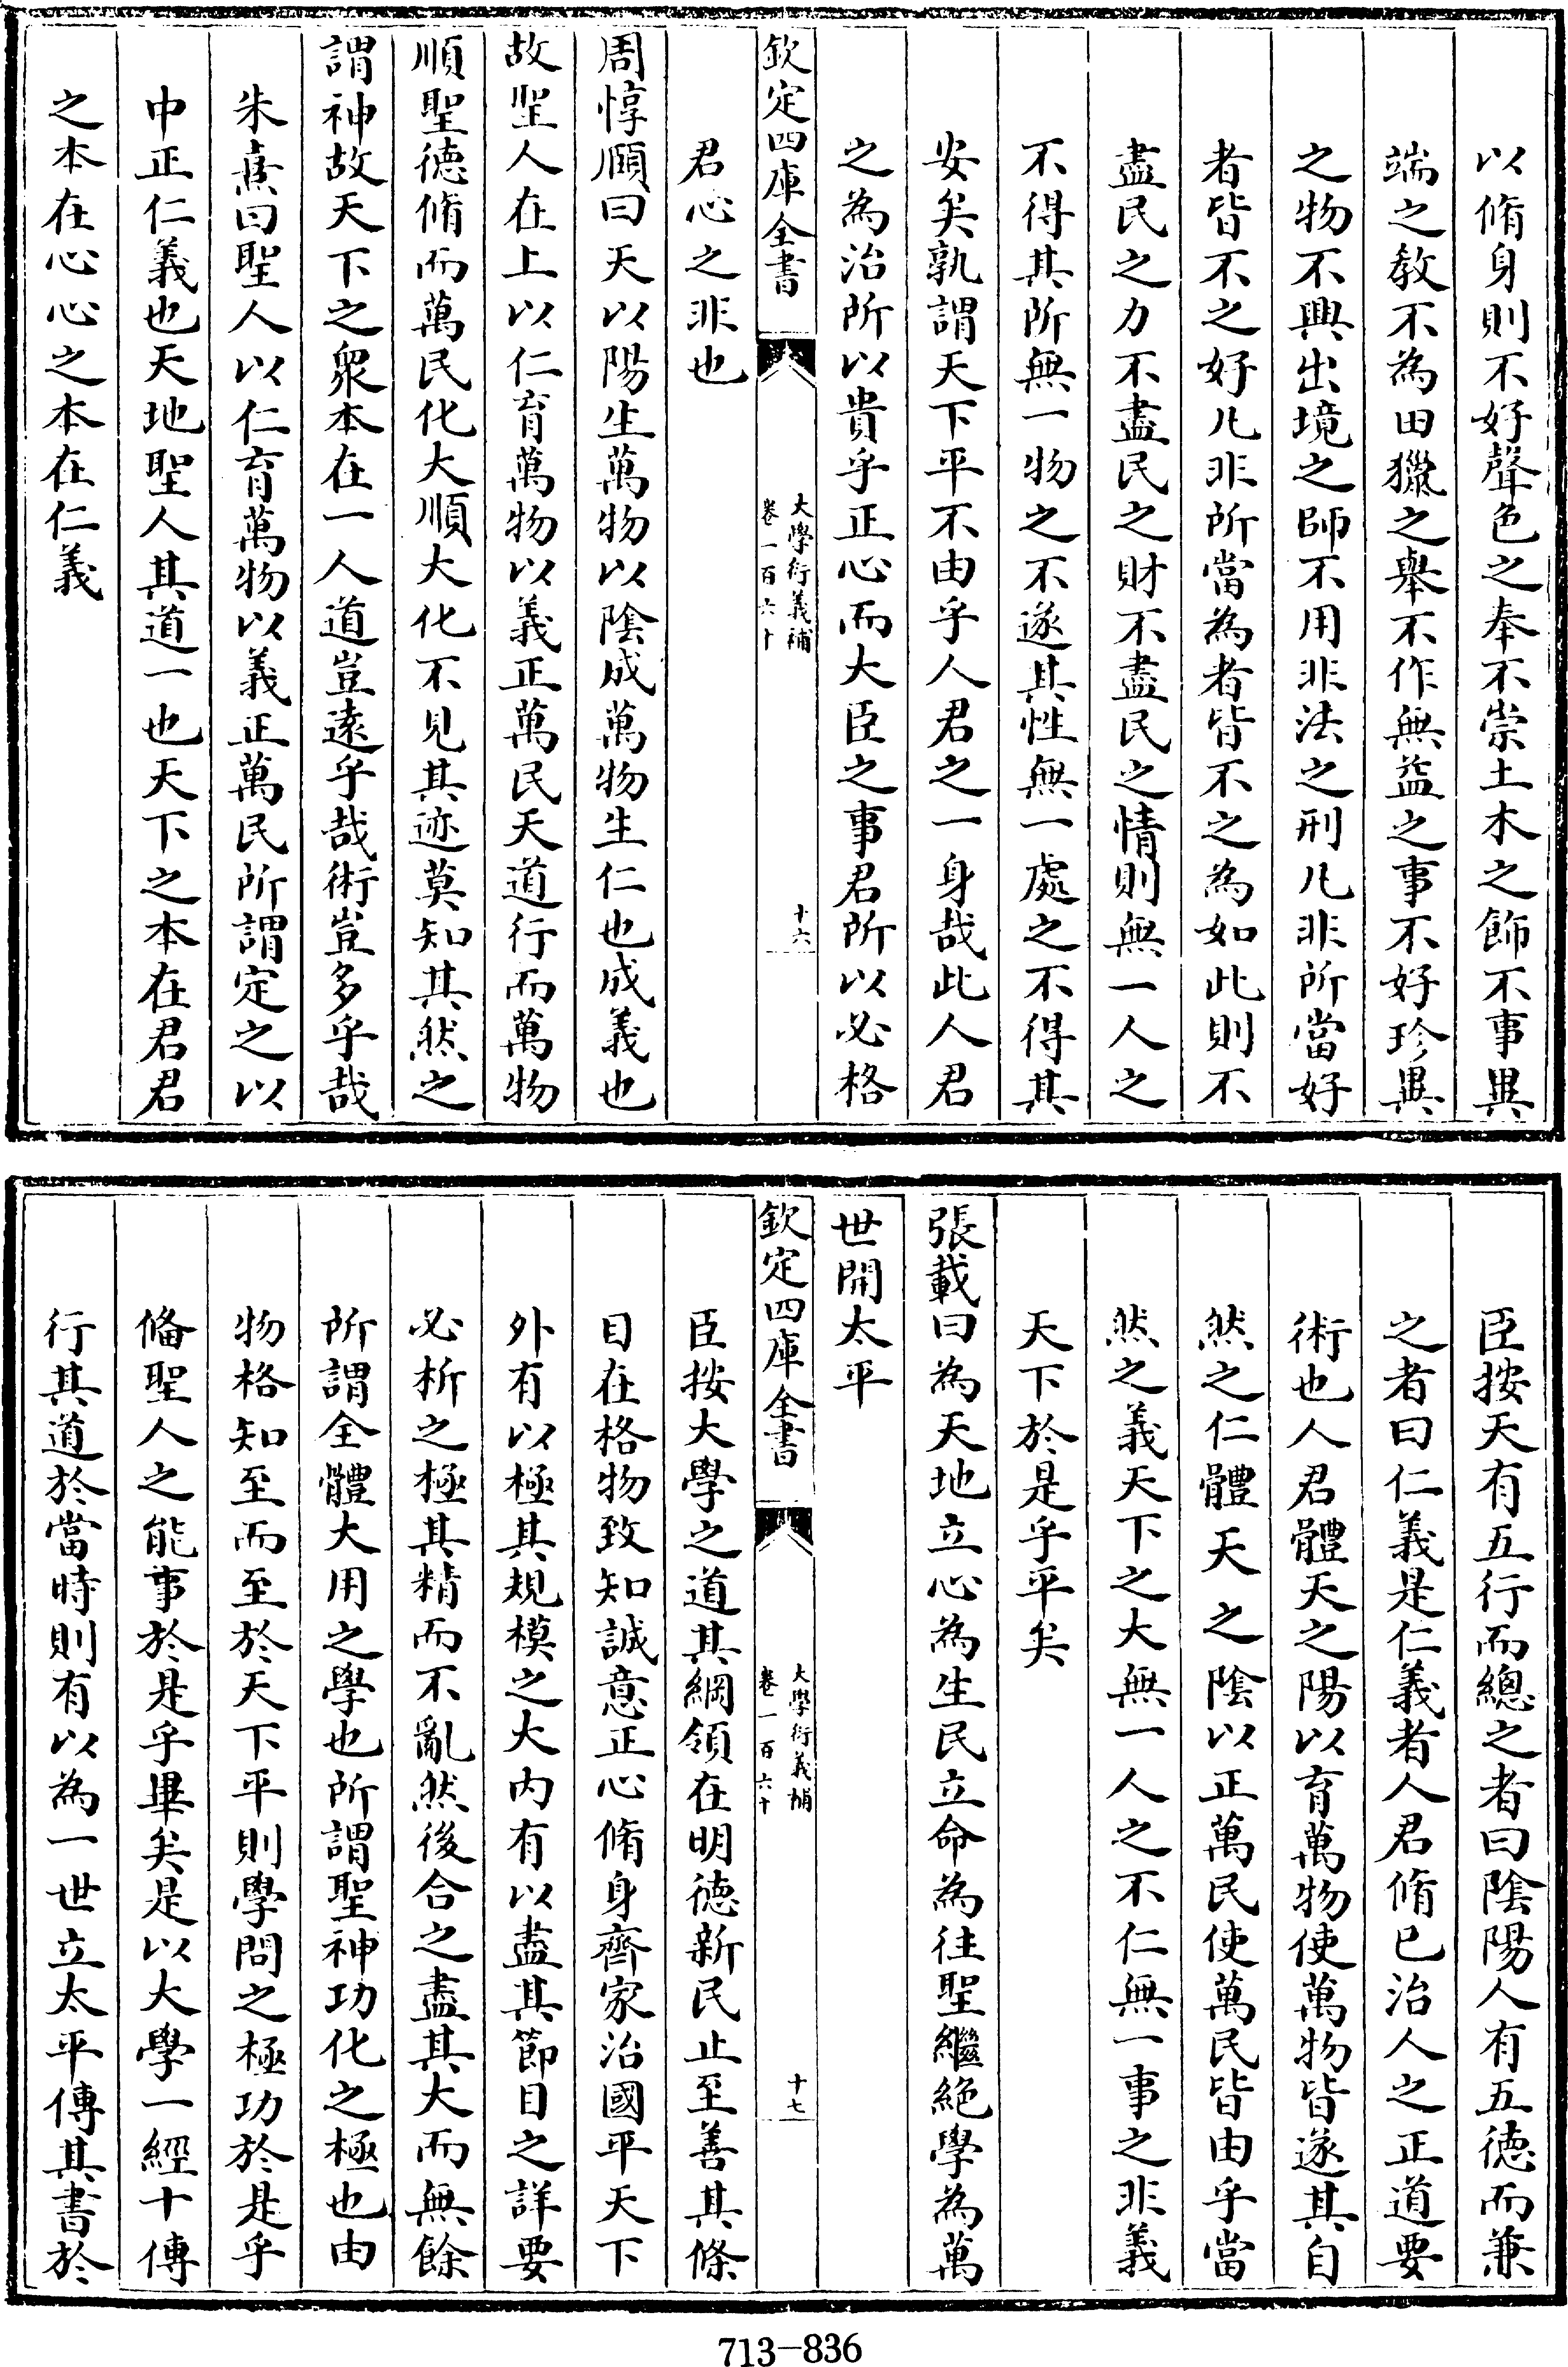 以脩身則不好聲色之奉不崇土木之飾不事異
端之教不為田獵之舉不作無益之事不好珍異
之物不興出境之師不用非法之刑凡非所當好
者皆不之好凡非所當為者皆不之為如此則不
盡民之力不盡民之財不盡民之情則無一人之
不得其所無一物之不遂其性無一處之不得其
安矣孰謂天下平不由乎人君之一身哉此人君
之為治所以貴乎正心而大臣之事君所以必格
欽定四庫全書
大學衍義補
卷一百六十
十六
君心之非也
周惇頤曰天以陽生萬物以陰成萬物生仁也成義也
故聖人在上以仁育萬物以義正萬民天道行而萬物
順聖德脩而萬民化大順大化不見其迹莫知其然之
謂神故天下之衆本在一人道豈遠乎哉術豈多乎哉
朱熹曰聖人以仁育萬物以義正萬民所謂定之以
中正仁義也天地聖人其道一也天下之本在君君
之本在心心之本在仁義
臣按天有五行而總之者曰陰陽人有五德而兼
之者曰仁義是仁義者人君脩已治人之正道要
術也人君體天之陽以育萬物使萬物皆遂其自
然之仁體天之陰以正萬民使萬民皆由乎當
然之義天下之大無一人之不仁無一事之非義
天下於是乎平矣
張載曰為天地立心為生民立命為往聖繼絶學為萬
世開太平
欽定四庫全書
大學衍義補
卷一百六十
十七
臣按大學之道其綱領在明德新民止至善其條
目在格物致知誠意正心脩身齊家治國平天下
外有以極其規模之大内有以盡其節目之詳要
必析之極其精而不亂然後合之盡其大而無餘
所謂全體大用之學也所謂聖神功化之極也由
物格知至而至於天下平則學問之極功於是乎
備聖人之能事於是乎畢矣是以大學一經十傳
行其道於當時則有以為一世立太平傳其書於
713-836